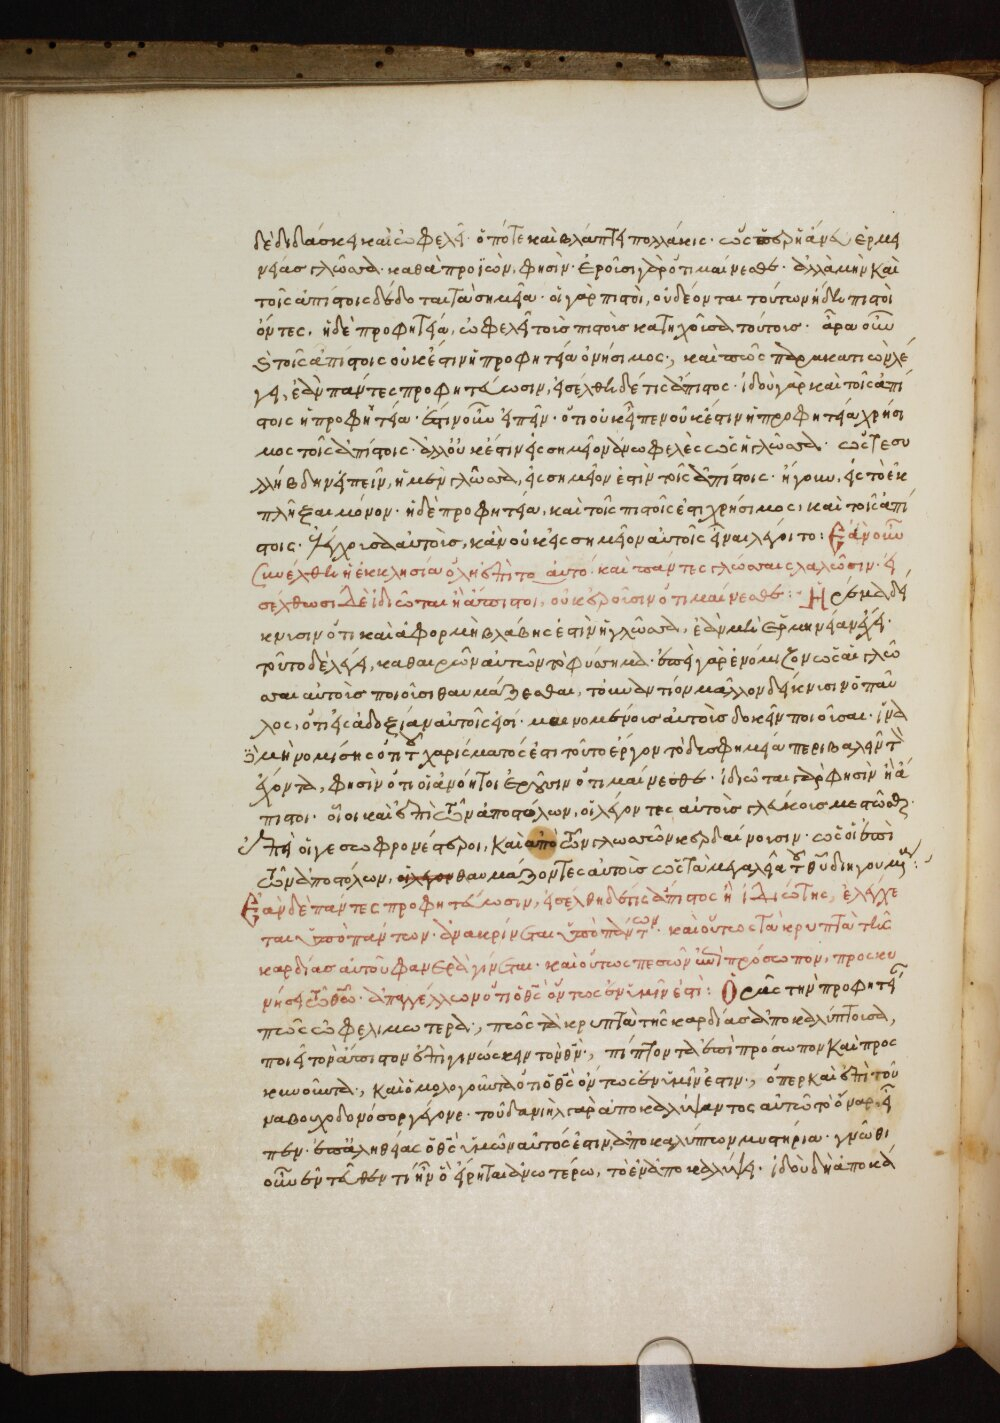 δὲ διδάσκει καὶ ὠφελεῖ· ὁπότε καὶ βλάπτει πολλάκις· ὡς ἡ ἄνευ ἑρμη
νείας γλῶσσα· καθὰ προϊὼν, φησὶν· ἐροῦσι γὰρ ὅτι μαίνεσθε· ἀλλὰ μὴν καὶ
τοῖς ἀπίστοις δέδοται τὰ σημεῖα· οἱ γὰρ πιστοὶ, οὐ δέονται τούτων ἤδη πιστοὶ
ὄντες. ἡ δὲ προφητεία, ὠφελεῖ τοῖς πιστοῖς κατηχοῦσα τούτοις· ἆρα οὖν
τοῖς ἀπίστοις οὐκ ἔστιν ἡ προφητεία ὀνήσιμος; καὶ πῶς παρακατιὼν λέ
γει, ἐὰν πάντες προφητεύωσιν, εἰσέλθη δέ τις ἄπιστος· ἰδοὺ γὰρ καὶ τοῖς ἀπί
στοις ἡ προφητεία· ἔστιν οὖν εἰπεῖν· ὅτι οὐκ εἶπεν οὐκ ἔστιν ἡ προφητεία χρήσι
μος τοῖς ἀπίστοις· ἀλλ' οὐκ ἔστιν εἰς σημεῖον ἀνωφελὲς ὡς ἡ γλῶσσα· ὥστε συ
λλήβδην εἰπεῖν, ἡ μὲν γλῶσσα, εἰς σημεῖον ἐστὶν τοῖς ἀπίστοις· ἤγουν, εἰς τὸ ἐκ
πλῆξαι μόνον· ἡ δὲ προφητεία, καὶ τοῖς πιστοῖς ἐστι χρήσιμος, καὶ τοῖς ἀπί
στοις· ἐλέγχουσα αὐτοὺς, κἂν οὐκ εἰς σημεῖον αὐτοῖς εἶναι λέγοιτο: Ἐὰν οὖν
συνέλθη ἡ ἐκκλησία ὅλη ἐπὶ τὸ αὐτό· καὶ πάντες γλώσσαις λαλῶσιν· εἰ
σέλθωσι δὲ ἰδιῶται ἢ ἄπιστοι, οὐκ ἐροῦσιν ὅτι μαίνεσθε: Ἠρέμα δεί
κνυσιν ὅτι καὶ ἀφορμὴ βλάβης ἐστὶν ἡ γλῶσσα, ἐὰν μὴ ἑρμηνείαν ἔχη·
τοῦτο δὲ λέγει, καθαιρῶν αὐτῶν τὸ φύσημα· ἐπεὶ γὰρ ἐνόμιζον ὡς αἱ γλῶ
σσαι αὐτοὺς ποιοῦσι θαυμάζεσθαι, τὸ ἐναντίον μᾶλλον δείκνυσιν ὁ παῦ
λος, ὅτι εἰς ἀδοξίαν αὐτοῖς εἰσί· μαινομένους αὐτοὺς δοκεῖν ποιοῦσαι· ἵνα
μὴ νομίσης ὅτι τοῦ χαρίσματός ἐστι τοῦτο ἔργον τὸ δυσφημία περιβαλεῖν τὸν
ἔχοντα, φησὶν ὅτι οἱ ἀνόητοι ἐροῦσιν ὅτι μαίνεσθε· ἰδιῶται γάρ φησὶν ἢ ἄ
πιστοι· οἷοι καὶ ἐπὶ τῶν ἀποστόλων, οἱ λέγοντες αὐτοὺς γλεύκους μεστῶσθαι·
ἐπεὶ οἵγε σωφρονέστεροι, καὶ ἀπὸ τῶν γλωσσῶν κερδαίνουσιν· ὡς οἱ ἐπὶ
τῶν ἀποστόλων, θαυμάζοντες αὐτοὺς ὡς τὰ μεγαλεῖα τοῦ θυ διηγουμένους:
Ἐὰν δὲ πάντες προφητεύωσιν, εἰσέλθη δέ τις ἄπιστος ἢ ἰδιώτης, ἐλέγχε
ται ὑπὸ πάντων· ἀνακρίνεται ὑπὸ πάντων· καὶ οὕτως τὰ κρυπτὰ τῆς
καρδίας αὐτοῦ φανερὰ γίνεται· καὶ οὕτως πεσὼν ἐπὶ πρόσωπον, προσκυ
νήσει τῷ θω· ἀπαγγέλλων ὅτι ὁ θς ὄντως ἐν ὑμῖν ἐστι: Ὁρᾶς τὴν προφητείαν
πῶς ὠφελιμωτέρα, πῶς τὰ κρυπτὰ τῆς καρδίας ἀποκαλύπτουσα,
ποιεῖ τὸν ἄπιστον ἐπιγινώσκειν τὸν θν, πίπτοντα ἐπὶ πρόσωπον καὶ προς
κυνοῦντα, καὶ ὁμολογοῦντα ὅτι ὁ θς ὄντως ἐν ὑμῖν ἐστιν, ὅπερ καὶ ἐπὶ τοῦ
ναβουχοδονόσορ γέγονε· τοῦ δανιὴλ γὰρ ἀποκαλύψαντος αὐτῷ τὸ ὄναρ, εἶ
πεν· ἐπ' ἀληθείας ὁ θς ὑμῶν αὐτός ἐστιν, ἀποκαλύπτων μυστήρια· γνῶθι
οὖν ἐντεῦθεν τί ἦν ὃ εἴρηται ἀνωτέρω, τὸ ἐν ἀποκαλύψει· ἰδοὺ δὴ ἀποκά